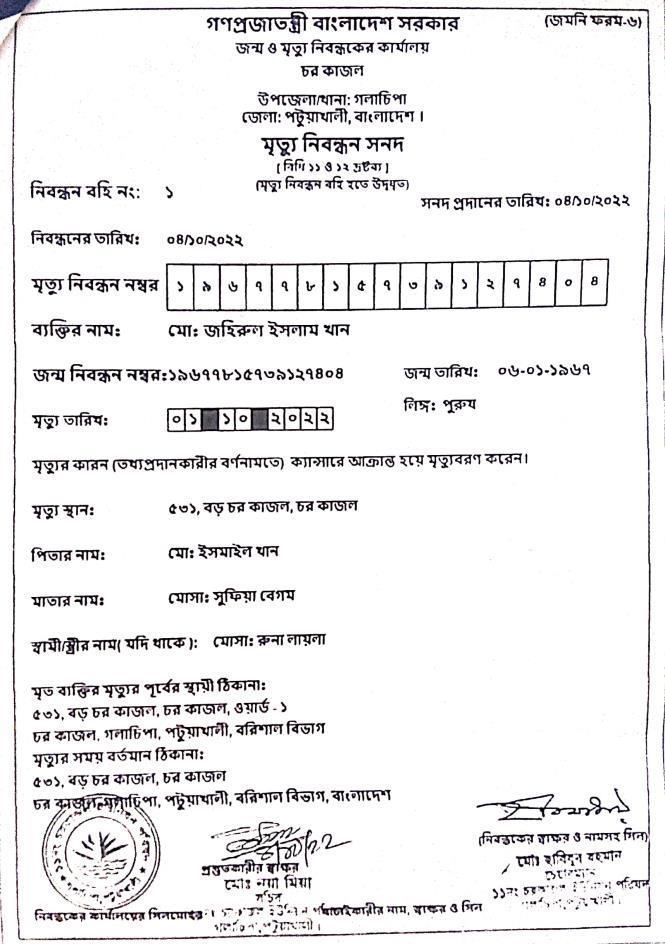 গণপ্রজাতন্ত্রী বাংলাদেশ সরকার
(জমনি ফরম-৬)
জন্ম ও মৃত্যু নিবন্ধকের কার্যালয়
চর কাজল
উপজেলা/থানা: গলাচিপা
জেলা: পটুয়াখালী, বাংলাদেশ।
মৃত্যু নিবন্ধন সনদ
(বিধি ১১ ও ১২ দ্রষ্টব্য)
(মৃত্যু নিবন্ধন বহি হতে উদধৃত)
নিবন্ধন বহি নং: ১
সনদ প্রদানের তারিখ: ০৪/১০/২০২২
নিবন্ধনের তারিখ: ০৪/১০/২০২২
মৃত্যু নিবন্ধন নম্বর ১৯৬৭৭৮১৫৭৩৯১২৭৪০৪
ব্যক্তির নাম: মো: জহিরুল ইসলাম খান
জন্ম নিবন্ধন নম্বর:১৯৬৭৭৮১৫৭৩৯১২৭৪০৪ জন্ম তারিখ: ০৬-০১-১৯৬৭
মৃত্যু তারিখ: ০১ ১০ ২০২২
লিঙ্গ: পুরুষ
মৃত্যুর কারন (তথ্যপ্রদানকারীর বর্ণনামতে) ক্যান্সারে আক্রান্ত হয়ে মৃত্যুবরণ করেন।
মৃত্যু স্থান: ৫৩১, বড় চর কাজল, চর কাজল
পিতার নাম: মো: ইসমাইল খান
মাতার নাম: মোসা: সুফিয়া বেগম
স্বামী/স্ত্রীর নাম( যদি থাকে ): মোসা: রুনা লায়লা
মৃত ব্যক্তির মৃত্যুর পূর্বের স্থায়ী ঠিকানা:
৫৩১, বড় চর কাজল, চর কাজল, ওয়ার্ড - ১
চর কাজল, গলাচিপা, পটুয়াখালী, বরিশাল বিভাগ
মৃত্যুর সময় বর্তমান ঠিকানা:
৫৩১, বড় চর কাজল, চর কাজল
চর কাজল, গলাচিপা, পটুয়াখালী, বরিশাল বিভাগ, বাংলাদেশ
প্রস্তুতকারীর স্বাক্ষর
মোঃ নয়া মিয়া
সচিব
(নিবন্ধকের স্বাক্ষর ও নামসহ সিল)
মোঃ হাবিবুর রহমান
চেয়ারম্যান
১১নং ইউনিয়ন পরিষদ
নিবন্ধকের কার্যালয়ের সিলমোহর যাচাইকারীর নাম, স্বাক্ষর ও সিল
গলাচিপা, পটুয়াখালী।